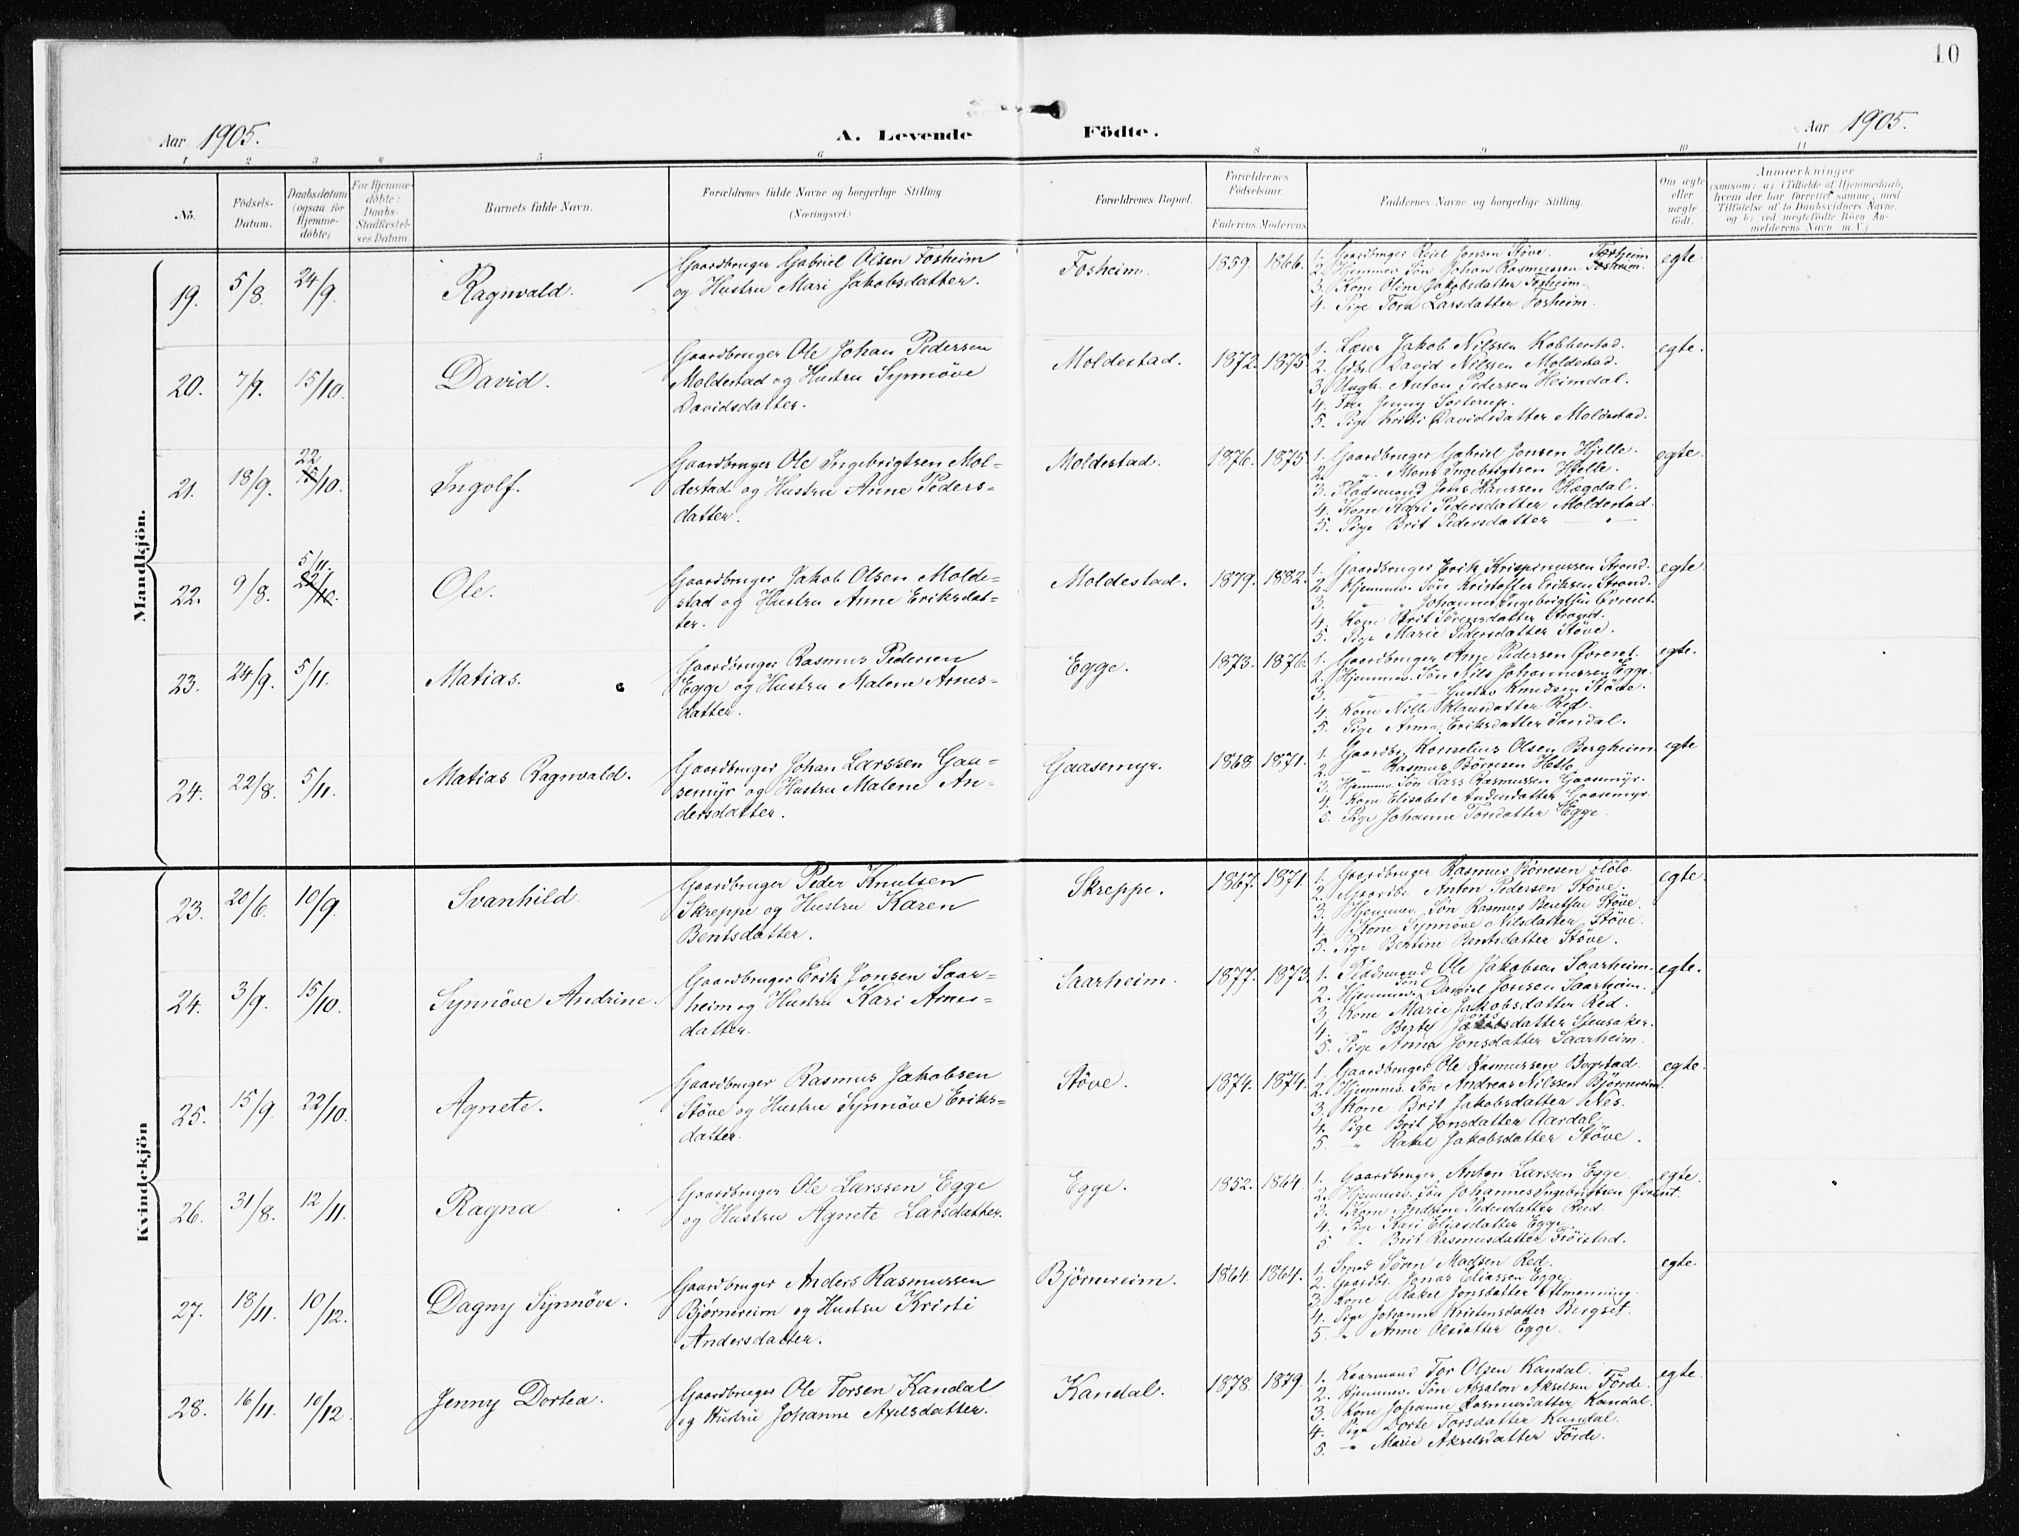 10
Aar 1905.
A. Levende Födte.
Aar 1905.
1 2 3 4 5 6 8 9 10 11
No.
Födsels-Datum.
Daabsdatum (ogsaa for Hjemme-döbte)
For Hjemme-döbte: Daabs-Stadfestel-ses Datum.
Barnets fulde Navn.
Forældrenes fulde Navne og borgerlige Stilling.
(Næringsvei.)
Forældrenes Bopæl.
Forældrenes Födselsaar.
Faderens. Moderens.
Faddernes Navne og borgerlige Stilling.
Om ægte eller uægte födt.
Anmærkninger
(saasom: a) i Tilfælde af Hjemmedaab, hvem der har forrettet samme, med Tilföielse af to Daabsvidners Navne, og b) ved uegtefödte Börn An-melderens Navn m. V.)
Mandkjön.
19. 5/8 24/9. Ragnvald.
Gaardbruger Gabriel Olsen Fosheim
og Hustru Mari Jakobsdatter.
Fosheim. 1859. 1866.
1. Gaardbruger Reiel Jonsen Støve.
2. Hjemmev. Søn Johan Rasmussen Fosheim.
3. Kone Oline Jakobsdatter Fosheim.
4. Pige Tora Larsdatter Fosheim.
egte
20. 7/9. 15/10. David.
Gaardbruger Ole Johan Pedersen
Moldestad og Hustru Synnøve
Davidsdatter.
Moldestad. 1872. 1875
1. Lærer Jakob Nilssen Kobberstad.
2. Gbr. David Nilssen Moldestad.
3. Ungk. Anton Pedersen Heimdal.
4. Frk. Jenny Sorterup.
5. Pige Kristi Davidsdatter Moldestad.
egte.
21. 18/9. 22/10. Ingolf.
Gaardbruger Ole Ingebrigtsen Mol-
destad og Hustru Anne Peders-
datter.
Moldestad. 1876. 1875
1. Gaardbruger Gabriel Jonsen Hjelle.
2. " Mons Ingebrigtsen Hjelle.
3. Pladsmand Jens Hanssen Hægdal.
4. Kone Kari Pedersdatter Moldestad.
5. Pige Brit Pedersdatter — " —
egte.
22. 9/8. 5/11. 22/10. Ole.
Gaardbruger Jakob Olsen Molde-
stad og Hustru Anne Eriksdat-
ter.
Moldestad. 1879. 1882.
1. Gaardbruger Erik Krispinussen Strand.
2. Hjemmev. Søn Kristoffer Eriksen Strand.
3. — " — Johannes Ingebrigtsen Øvreset.
4. Kone Brit Sørensdatter Strand.
5. Pige Marie Pedersdatter Støve.
egte.
23. 24/9. 5/11. Matias.
Gaardbruger Rasmus Pedersen
Egge og Hustru Malene Arnes-
datter.
Egge. 1873. 1876.
1. Gaardbruger Arne Pedersen Øvreset.
2. Hjemmev. Søn Nils Johannessen Egge.
3. — " — Gustav Knudsen Støve.
4. Kone Nille Klausdatter Red.
5. Pige Anna Eriksdatter Sandal.
egte.
24. 22/8. 5/11. Matias Ragnvald.
Gaardbruger Johan Larssen Gaa-
semyr og Hustru Malene An-
dersdatter.
Gaasemyr. 1868 1871.
1. Gaardbr. Kornelius Olsen Bergheim.
2. — " — Rasmus Børresen Hesle.
3. Hjemmev. Søn Lars Rasmussen Gaasemyr.
4. Kone Elisabet Andersdatter Gaasemyr.
5. Pige Johanne Torsdatter Egge.
egte
Kvindekjön
23. 20/6. 10/9. Svanhild.
Gaardbruger Peder Knutsen
Skreppe og Hustru Karen
Bentsdatter.
Skreppe. 1867. 1871.
1. Gaardbruger Rasmus Børresen
2. Gaardbr. Anton Pedersen Støve.
3. Hjemmev. Søn Rasmus Bentsen Støve.
4. Kone Synnøve Nilsdatter Støve.
5. Pige Bertine Bentsdatter Støve.
egte.
24. 3/9. 15/10. Synnöve Andrine.
Gaardbruger Erik Jonsen Saar-
heim og Hustru Kari Arnes-
datter.
Saarheim. 1877. 1873.
1. Pladsmand Ole Jakobsen Saarheim.
2. Hjemmev. Søn Daniel Jonsen Saarheim.
3. Kone Marie Jakobsdatter Red.
4. " Berte Jakobsdatter Stensaker.
5. Pige Anna Jonsdatter Saarheim.
egte.
25. 15/9. 22/10. Agnete.
Gaardbruger Rasmus Jakobsen
Støve og Hustru Synnøve Eriks-
datter.
Støve. 1874. 1874.
1. Gaardbruger Ole Rasmussen Bogstad.
2. Hjemmev. Søn Andreas Nilssen Bjørnereim.
3. Kone Brit Jakobsdatter Nes.
4. Pige Brit Jonsdatter Aardal.
5. " Rakel Jakobsdatter Støve.
egte.
26. 31/8. 12/11. Ragna.
Gaardbruger Ole Larssen Egge
og Hustru Agnete Larsdatter.
Egge. 1852. 1864.
1. Gaardbruger Anton Larssen Egge.
2. Hjemmev. Søn Johannes Ingebrigtsen Øvreset.
3. Kone Andrine Pedersdatter Red.
4. Pige Kari Eliasdatter Egge.
5. " Brit Rasmusdatter Frøistad.
egte.
27. 18/11. 10/12. Dagny Synnöve.
Gaardbruger Anders Rasmussen
Bjørnereim og Hustru Kristi
Andersdatter.
Bjørnereim. 1864. 1864.
1. Smed Søren Madsen Red.
2. Gaardbr. Jonas Eliassen Egge.
3. Kone Rakel Jonsdatter Utmanning.
4. Pige Johanne Kristensdatter Bergset.
5. — " Anne Olsdatter Egge.
egte.
28. 16/11. 10/12. Jenny Dortea.
Gaardbruger Ole Torsen Kandal
og Hustru Johanne Axelsdatter.
Kandal. 1878. 1879.
1. Kaarmand Tor Olsen Kandal.
2. Hjemmev. Søn Absalon Akselsen Førde.
3. Kone Johanne Rasmusdatter Kandal.
4. Pige Dorte Torsdatter Kandal.
5. — " Marie Akselsdatter Førde.
egte.